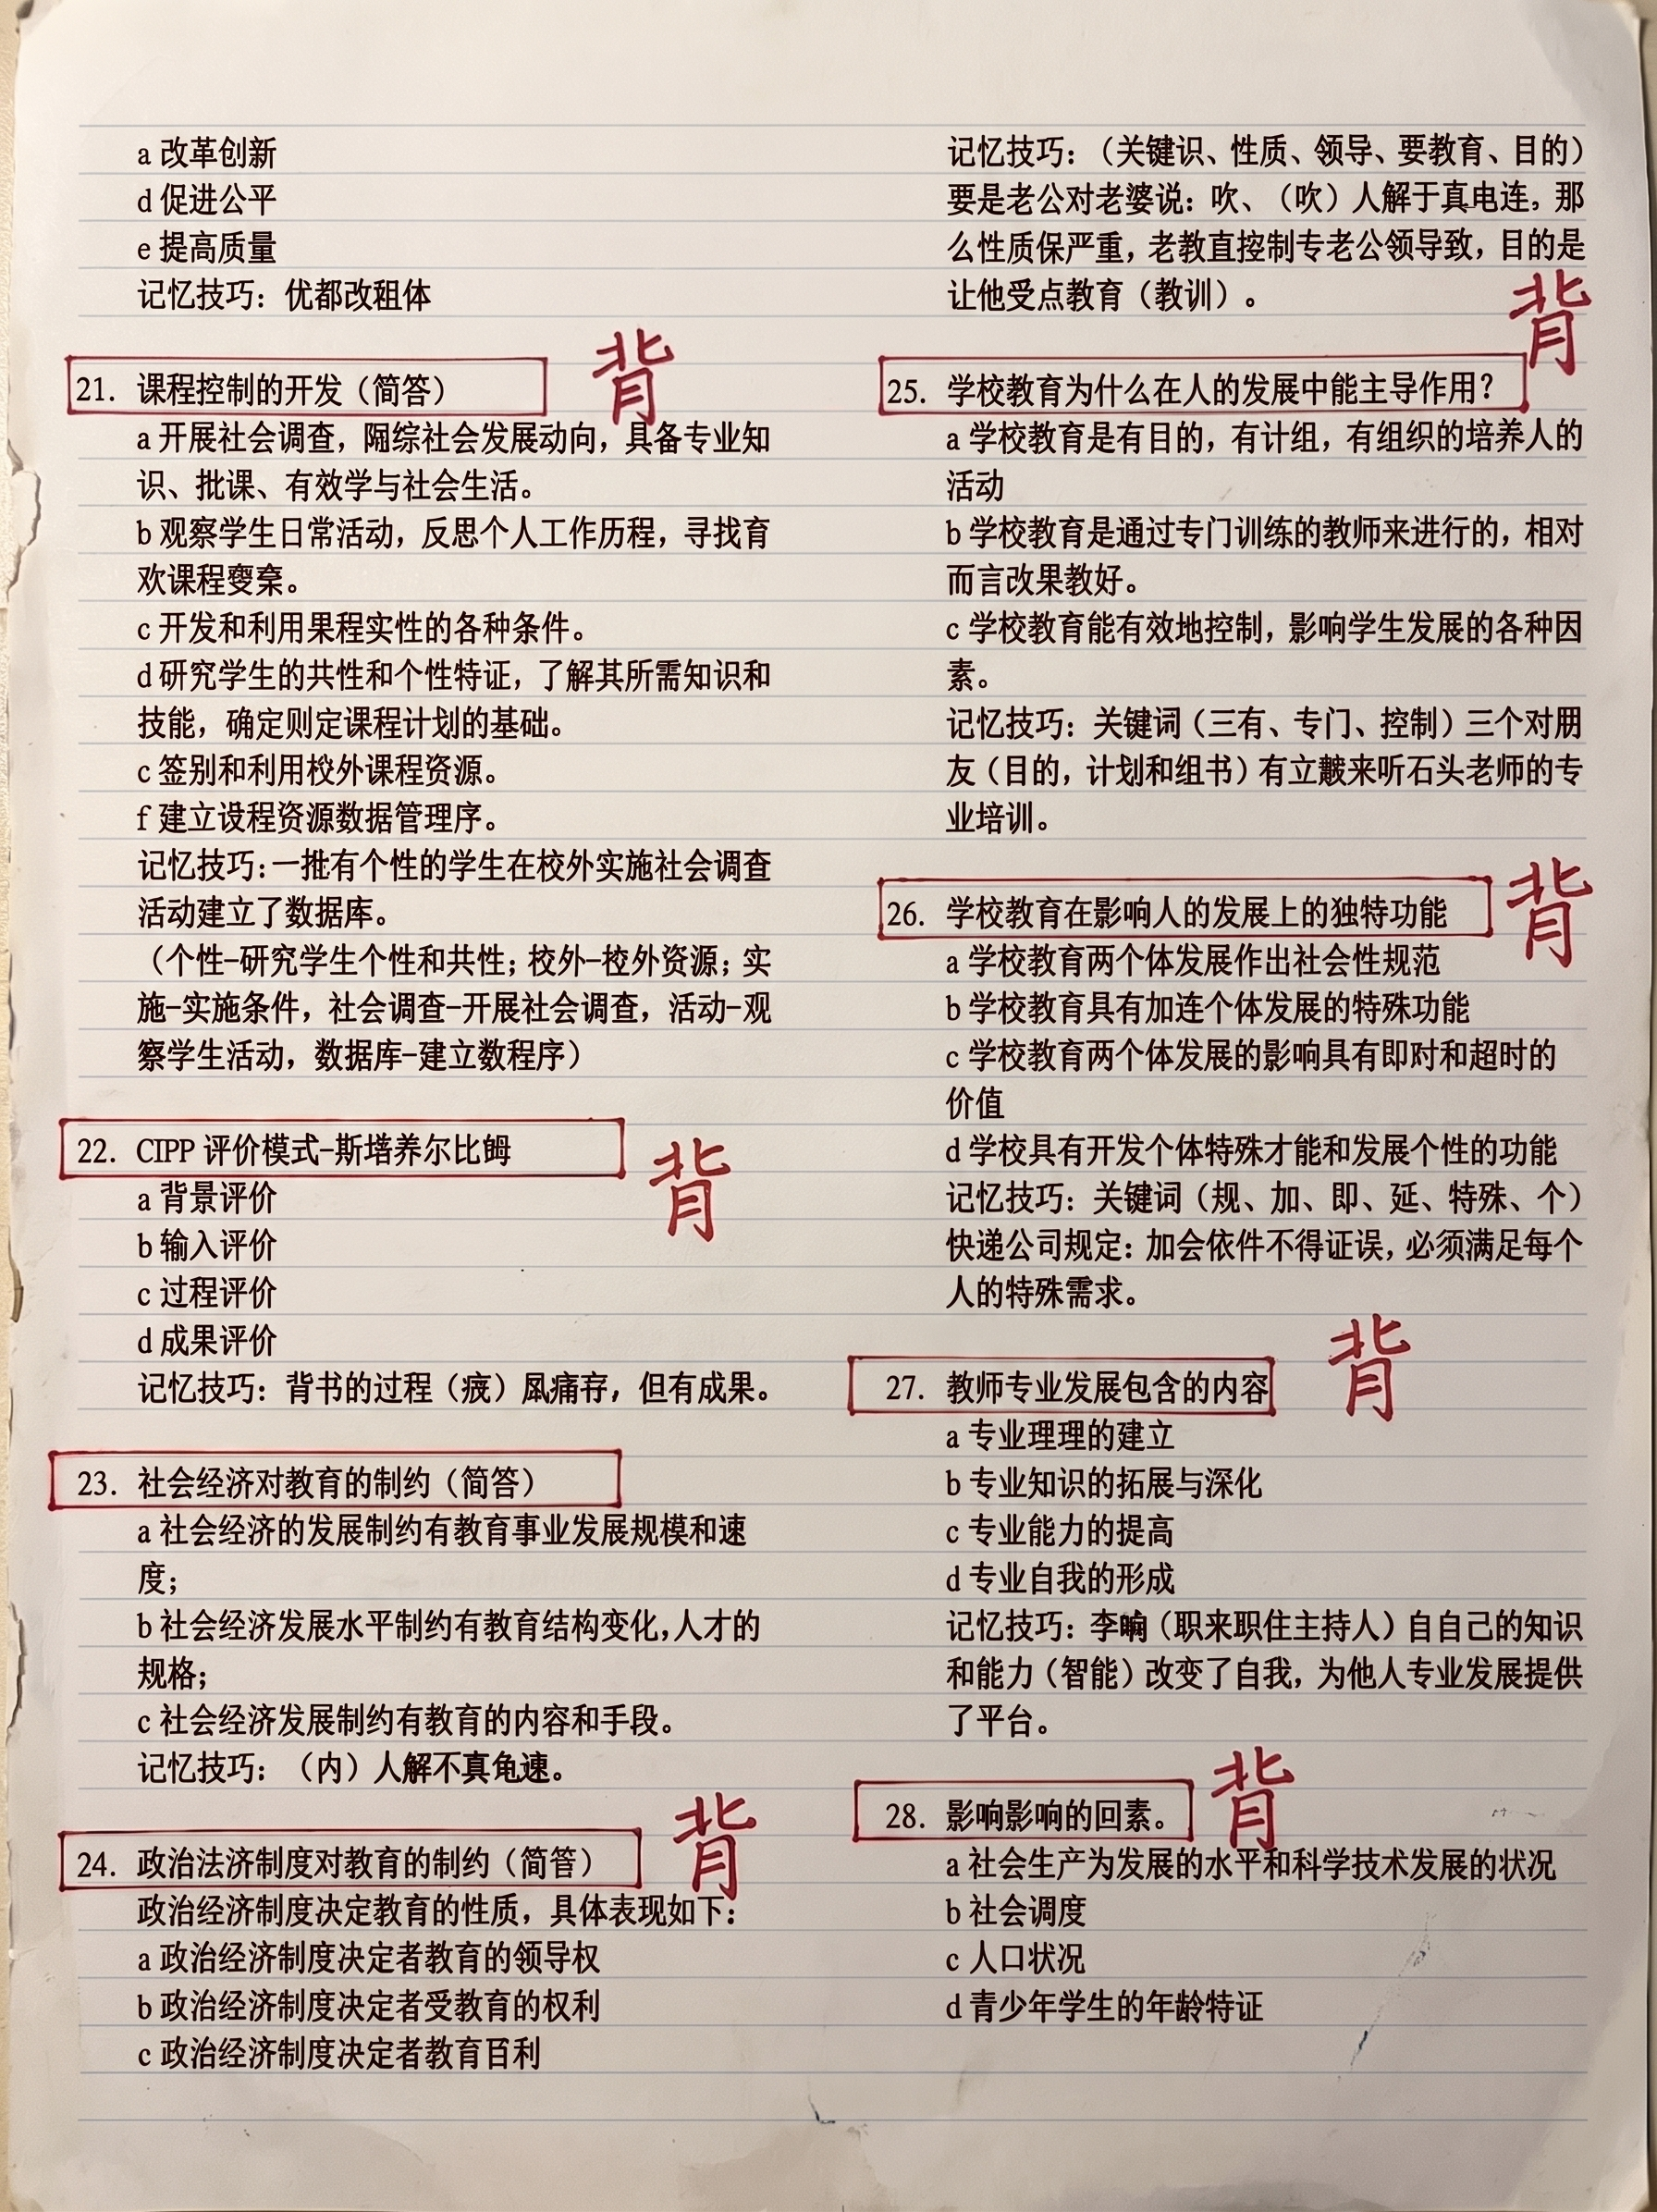 a 改革创新
d 促进公平
e 提高质量
记忆技巧：优都改租体
21. 课程控制的开发（简答）
背
a 开展社会调查，综社会发展动向，具备专业知
识、批课、有效学与社会生活。
b 观察学生日常活动，反思个人工作历程，寻找育
欢课程。
c 开发和利用果程实性的各种条件。
d 研究学生的共性和个性特证，了解其所需知识和
技能，确定则定课程计划的基础。
c 签别和利用校外课程资源。
f 建立设程资源数据管理序。
记忆技巧：一批有个性的学生在校外实施社会调查
活动建立了数据库。
（个性-研究学生个性和共性；校外-校外资源；实
施-实施条件，社会调查-开展社会调查，活动-观
察学生活动，数据库-建立数程序）
22. CIPP 评价模式-斯塔养尔比姆
背
a 背景评价
b 输入评价
c 过程评价
d 成果评价
记忆技巧：背书的过程（疲）痛存，但有成果。
23. 社会经济对教育的制约（简答）
a 社会经济的发展制约有教育事业发展规模和速
度；
b 社会经济发展水平制约有教育结构变化，人才的
规格；
c 社会经济发展制约有教育的内容和手段。
记忆技巧：（内）人解不真龟速。
24. 政治法济制度对教育的制约（简答）
背
政治经济制度决定教育的性质，具体表现如下：
a 政治经济制度决定者教育的领导权
b 政治经济制度决定者受教育的权利
c 政治经济制度决定者教育百利
记忆技巧：（关键识、性质、领导、要教育、目的）
要是老公对老婆说：吹、（吹）人解于真电连。那
么性质保严重，老教直控制专老公领导致，目的是
让他受点教育（教训）。
背
25. 学校教育为什么在人的发展中能主导作用？
a 学校教育是有目的，有计组，有组织的培养人的
活动
b 学校教育是通过专门训练的教师来进行的，相对
而言改果教好。
c 学校教育能有效地控制，影响学生发展的各种因
素。
记忆技巧：关键词（三有、专门、控制）三个对朋
友（目的，计划和组书）有立来听石头老师的专
业培训。
26. 学校教育在影响人的发展上的独特功能
背
a 学校教育两个体发展作出社会性规范
b 学校教育具有加连个体发展的特殊功能
c 学校教育两个体发展的影响具有即对和超时的
价值
d 学校具有开发个体特殊才能和发展个性的功能
记忆技巧：关键词（规、加、即、延、特殊、个）
快递公司规定：加会依件不得证误，必须满足每个
人的特殊需求。
27. 教师专业发展包含的内容
背
a 专业理理的建立
b 专业知识的拓展与深化
c 专业能力的提高
d 专业自我的形成
记忆技巧：李（职来职住主持人）自自己的知识
和能力（智能）改变了自我，为他人专业发展提供
了平台。
28. 影响影响的回素。
背
a 社会生产为发展的水平和科学技术发展的状况
b 社会调度
c 人口状况
d 青少年学生的年龄特证